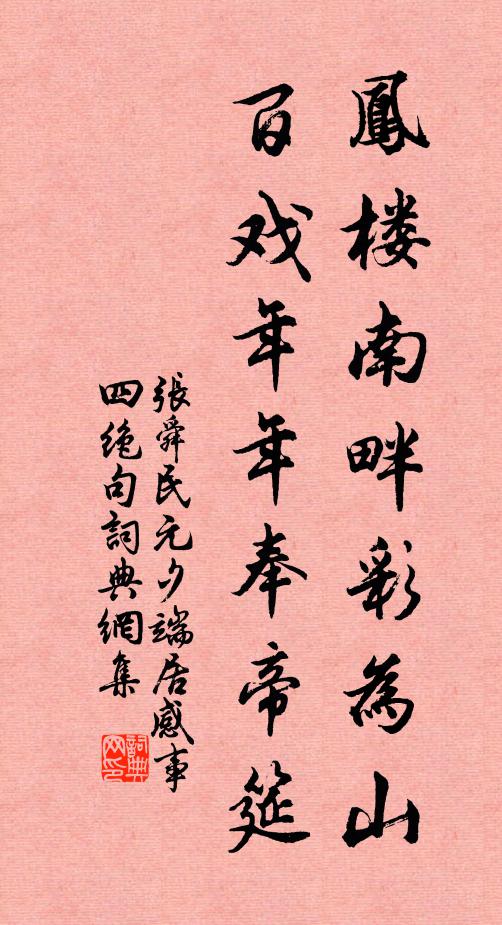 鳳楼南畔彩為山
百戏年年奉帝筵
張舜民元夕端居感事
四绝句詞典網集
詞典
网印